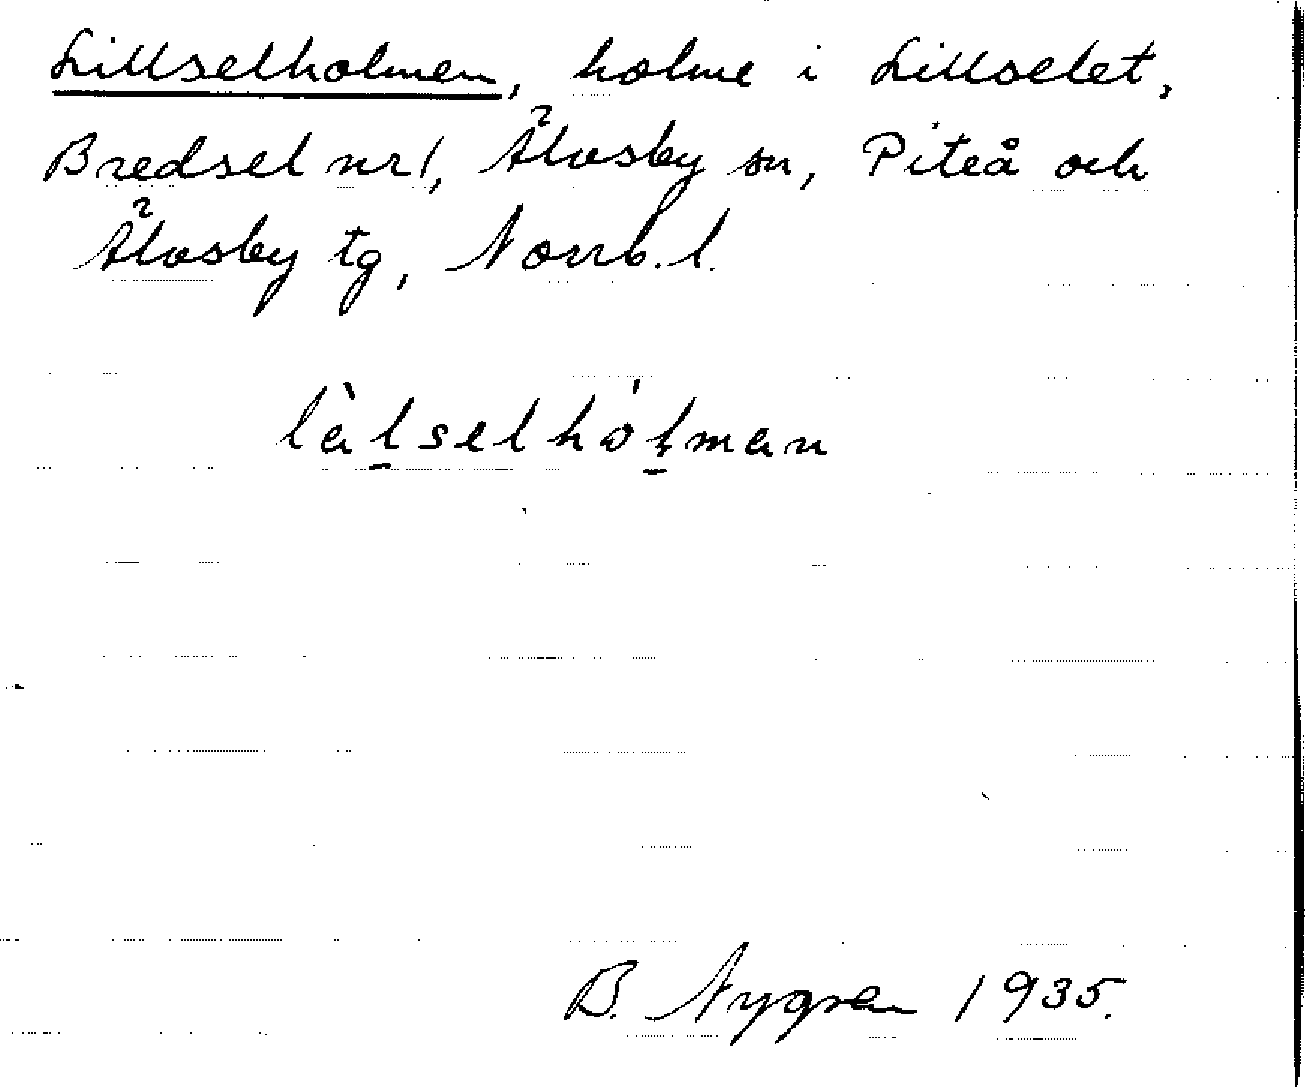 Lillselholmen, holme i Lillselet,
Bredsel nr 1, Älvsby sn, Piteå och
Älvsby tg, Norrb. l.
làlselhólman
B. Nygren 1935.